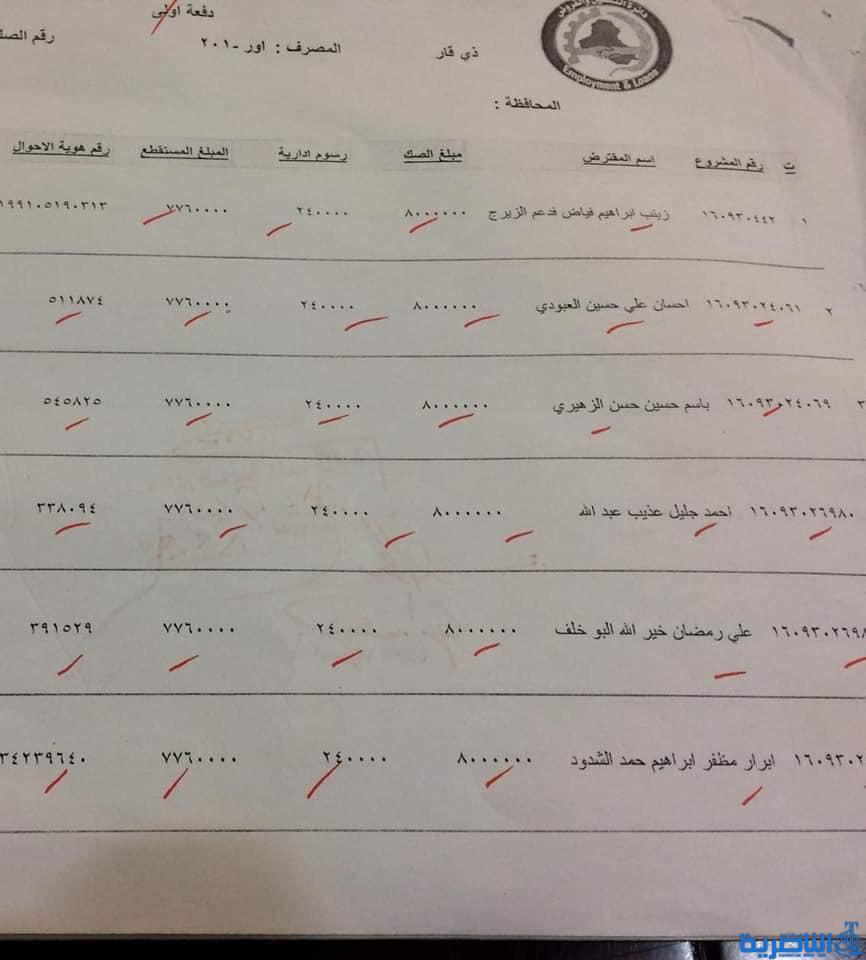 دفعة اولى
رقم
المصرف : اور -٢٠١
ذي قار
Employment & Loans
المحافظة :
ت رقم المشروع اسم المقترض مبلغ الصك رسوم ادارية المبلغ المستقطع رقم هوية الاحوال
١ ١٦٠٩٣٠٤٤٢ زينب ابراهيم فياض فدعم الزيرج ٨٠٠٠٠٠٠ ٢٤٠٠٠٠ ٧٧٦٠٠٠٠ ١٩٩١٠٥١٩٠٣١٣
٢ ١٦٠٩٣٠٢٤٠٦١ احسان علي حسين العبودي ٨٠٠٠٠٠٠ ٢٤٠٠٠٠ ٧٧٦٠٠٠٠ ٥١١٨٧٤
٣ ١٦٠٩٣٠٢٤٠٦٩ باسم حسين حسن الزهيري ٨٠٠٠٠٠٠ ٢٤٠٠٠٠ ٧٧٦٠٠٠٠ ٥٤٥٨٢٥
١٦٠٩٣٠٢٦٩٨٠ احمد جليل عذيب عبد الله ٨٠٠٠٠٠٠ ٢٤٠٠٠٠ ٧٧٦٠٠٠٠ ٣٣٨٠٩٤
١٦٠٩٣٠٢٦٩٨ علي رمضان خير الله البو خلف ٨٠٠٠٠٠٠ ٢٤٠٠٠٠ ٧٧٦٠٠٠٠ ٣٩١٥٢٩
١٦٠٩٣٠٢ ابرار مظفر ابراهيم حمد الشدود ٨٠٠٠٠٠٠ ٢٤٠٠٠٠ ٧٧٦٠٠٠٠ ٣٤٢٣٩٦٤٠
الناصرية